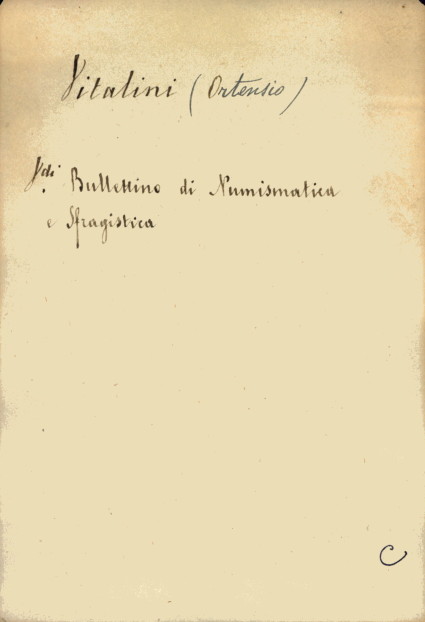 Vitalini (Ortensio)
Vdi Bullettino di Numismatica
e Sfragistica
C